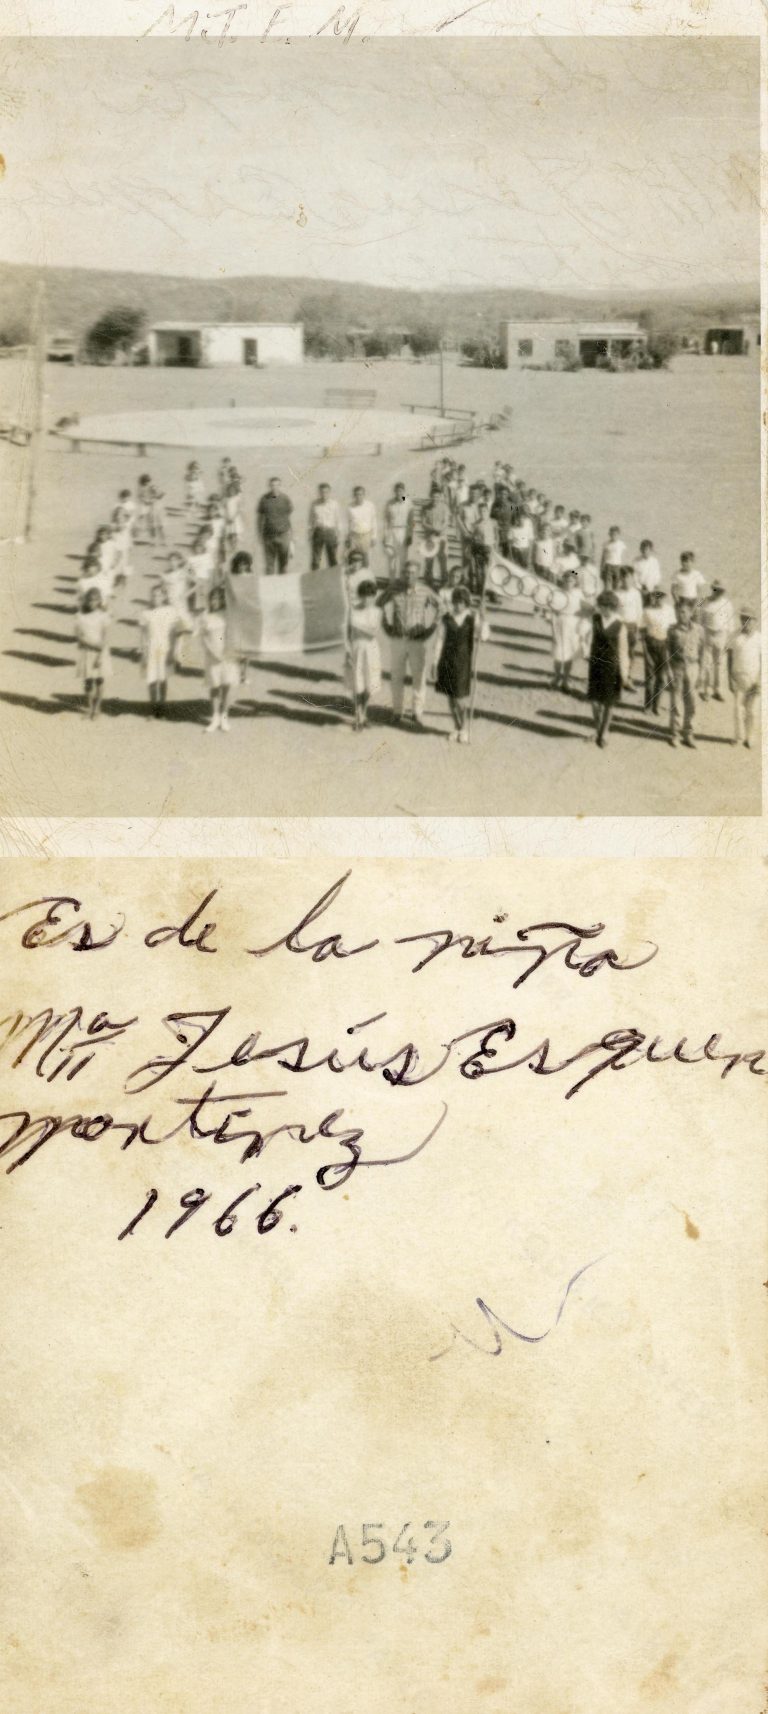 M.T. F. M.
Es de la niña
Ma Jesús Esquer
Montinez
1966.
A543